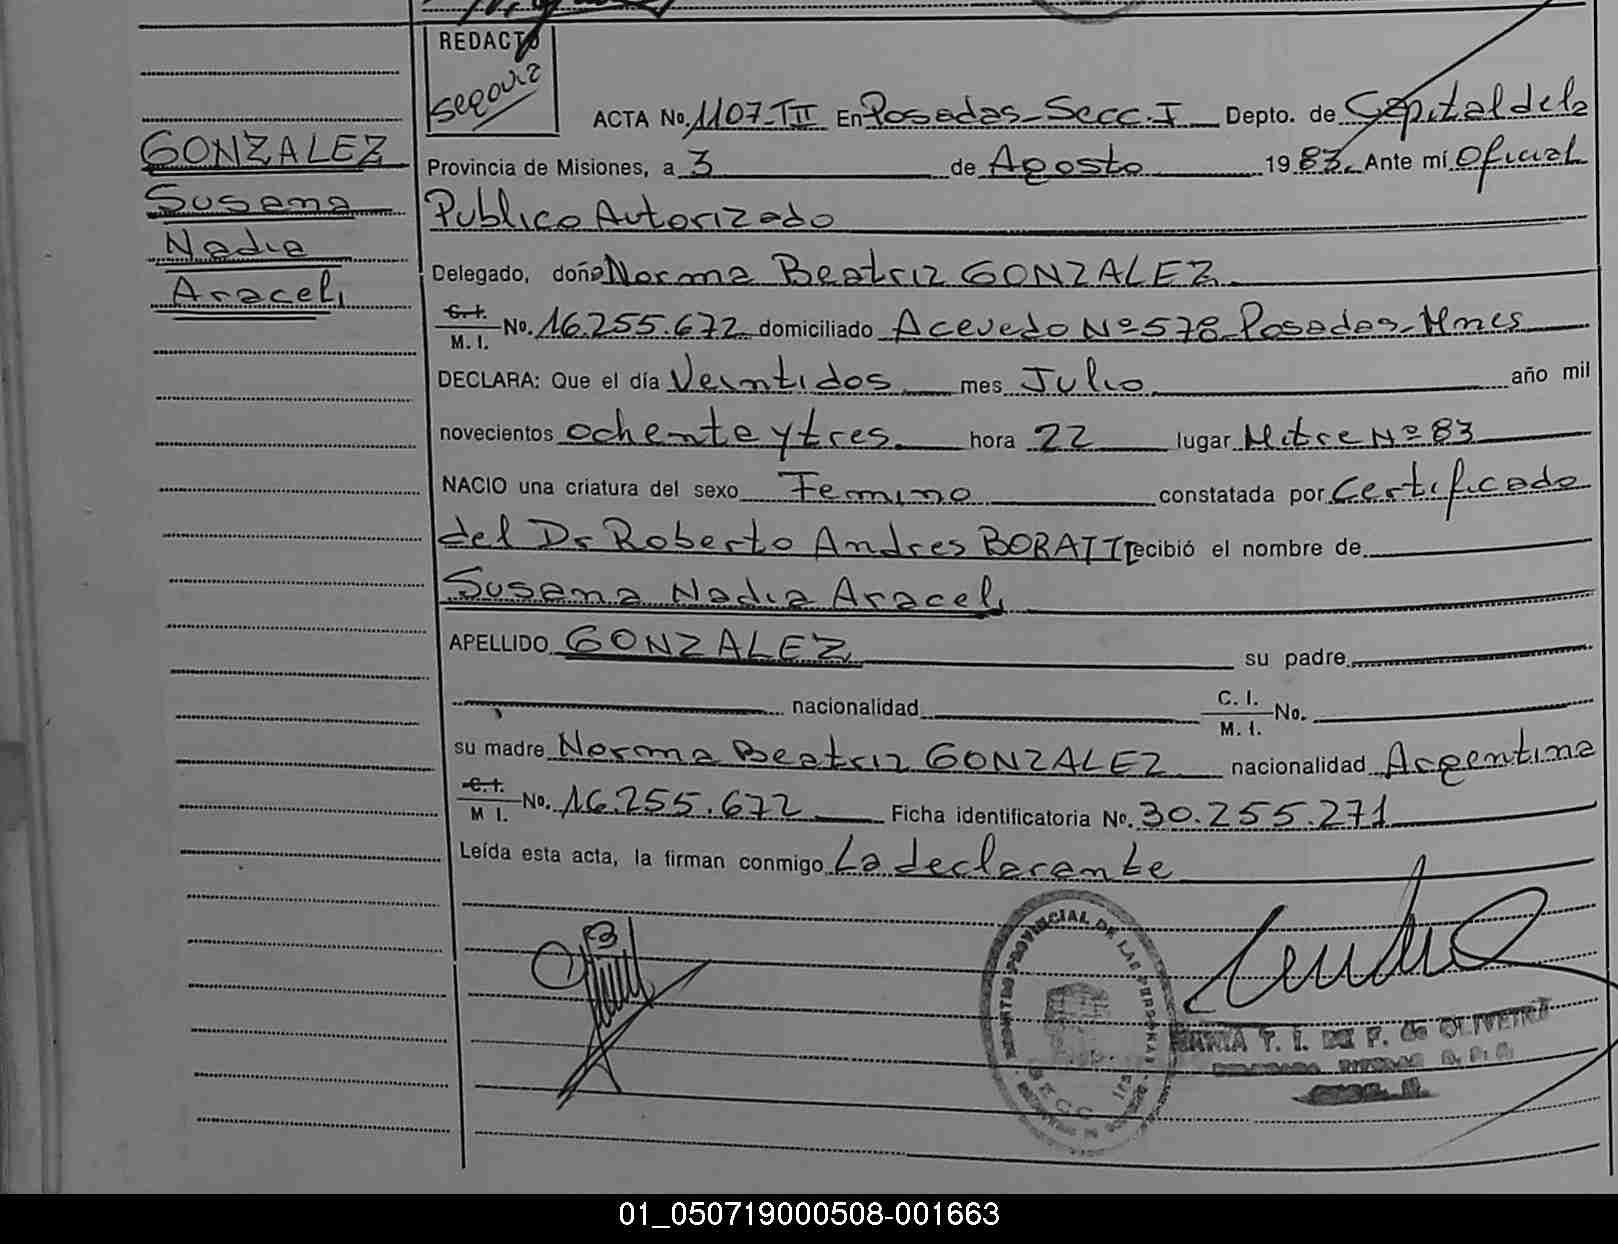 REDACTO
Segovia
GONZALEZ
Susana
Nadia
Araceli
ACTA No. 1107-TII En Posadas-Secc. I Depto. de Capital de la
Provincia de Misiones, a 3 de Agosto 1983. Ante mí Oficial
Publico Autorizado
Delegado, doña Norma Beatriz GONZALEZ
C.I.
M. I. No. 16.255.672 domiciliado Acevedo Nº 578 Posadas-Mnes
DECLARA: Que el día Veintidos mes Julio año mil
novecientos ochenta y tres hora 22 lugar Mitre Nº 83
NACIO una criatura del sexo Femino constatada por Certificado
del Dr Roberto Andres BORATTI recibió el nombre de
Susana Nadia Araceli
APELLIDO GONZALEZ su padre
nacionalidad C. I. M. I. No.
su madre Norma Beatriz GONZALEZ nacionalidad Argentina
C.I.
M I. No. 16.255.672 Ficha identificatoria No. 30.255.271
Leída esta acta, la firman conmigo La declarante
REGISTRO PROVINCIAL DE LAS PERSONAS
SECC.
MARIA T. I. DE F. de OLIVEIRA
01_050719000508-001663